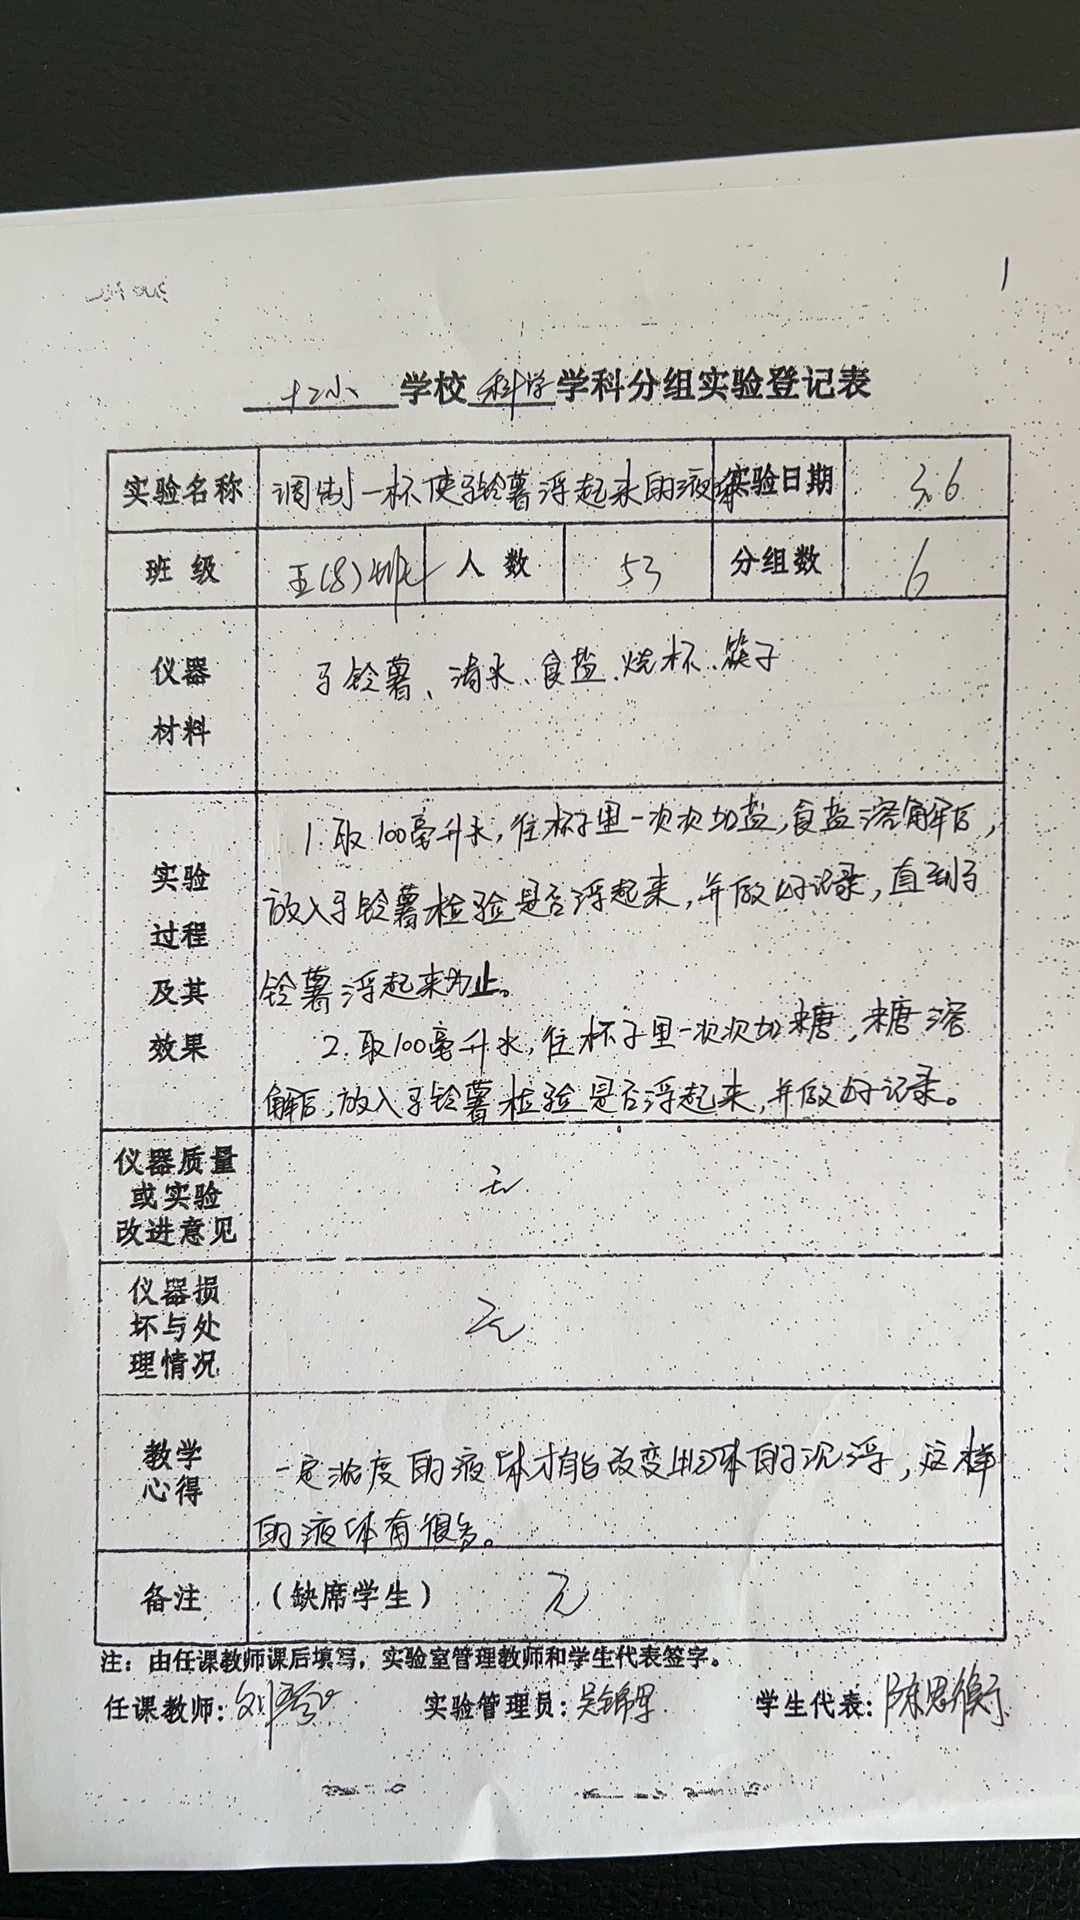 1
十二小 学校 科学 学科分组实验登记表
实验名称 调制一杯使马铃薯浮起来的液体 实验日期 3.6
班 级 五(8)班 人 数 53 分组数 6
仪器
材料
马铃薯、清水、食盐、烧杯、筷子
实验
过程
及其
效果
1.取100毫升水,往杯子里一次次加盐,食盐溶解后,
放入马铃薯检验是否浮起来,并做好记录,直到马
铃薯浮起来为止。
2.取100毫升水,往杯子里一次次加糖,糖溶
解后,放入马铃薯检验是否浮起来,并做好记录。
仪器质量
或实验
改进意见
无
仪器损
坏与处
理情况
无
教学
心得
一定浓度的液体才能改变物体的沉浮,这样
的液体有很多。
备注 (缺席学生) 无
注:由任课教师课后填写,实验室管理教师和学生代表签字。
任课教师:刘 实验管理员:吴锦 学生代表:陈思